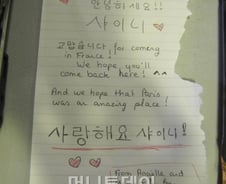 안녕하세요!!
샤이니
고맙습니다 for coming
in France!
We hope you'll
come back here! ^^
And we hope that Paris
was an amazing place!
사랑해요 샤이니!
From Anaëlle and
머니투데이